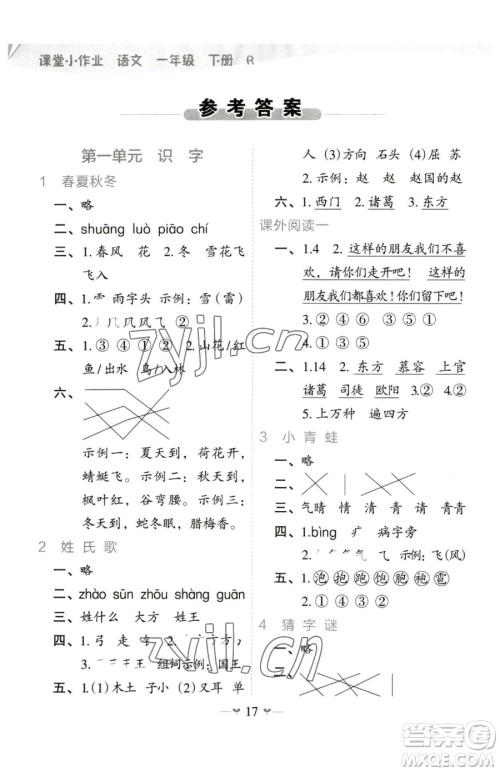 课堂小作业 语文 一年级 下册 R
参考答案
第一单元 识字
1 春夏秋冬
一、略
二、shuāng luò piāo chí
三、1.春风 花 2.冬 雪花飞
飞入
四、1.雪 雨字头 示例：雪(雷)
2.丿几凡风飞 ②
五、1.③④①② 2.山花/红
鱼/出水 鸟/入林
六、
示例一：夏天到，荷花开，
蜻蜓飞。示例二：秋天到，
枫叶红，谷弯腰。示例三：
冬天到，蛇冬眠，腊梅香。
2 姓氏歌
一、略
二、zhào sūn zhōu shǎng guān
三、姓什么 大方 姓王
四、1.弓 走 4 2.
方 ②
3. 王 组词示例：国王
五、1.(1)木土 子小 (2)又耳 单
人 (3)方向 石头 (4)屈 苏
2.示例：赵 赵 赵国的赵
六、1.西门 2.诸葛 3.东方
课外阅读一
一、1.4 2.这样的朋友我们不喜
欢，请你们走开吧！ 这样的
朋友我们太喜欢了！
3.②④⑥⑤①
4.①③②
二、1.4 2.东方 慕容 上官
诸葛 司徒 欧阳 3.①
4.③②①
5.上万种 遍四方
3 小青蛙
一、略
二、
三、气晴 情清 青请 青青
四、1.bìng 疒 病字旁
2. 飞 示例：飞(风)
五、1.泡抱跑炮饱袍雹
2.①②②
4 猜字谜
一、略
二、
17
zyjl.cn
zyjl.cn